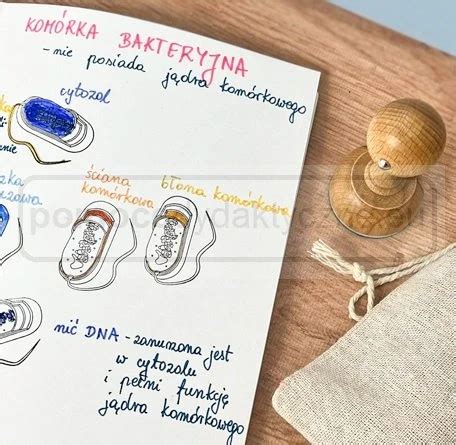 KOMÓRKA BAKTERYJNA
- nie posiada jądra komórkowego
cytozol
ściana
komórkowa
błona komórkowa
nić DNA - zanurzona jest
w cytozolu
i pełni funkcję
jądra komórkowego